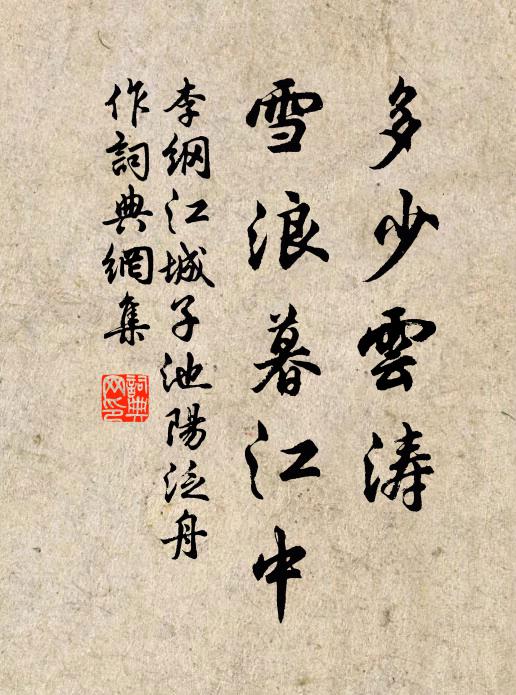 多少雲涛
雪浪暮江中
李綱江城子池陽泛舟
作詞典網集
詞典
网印